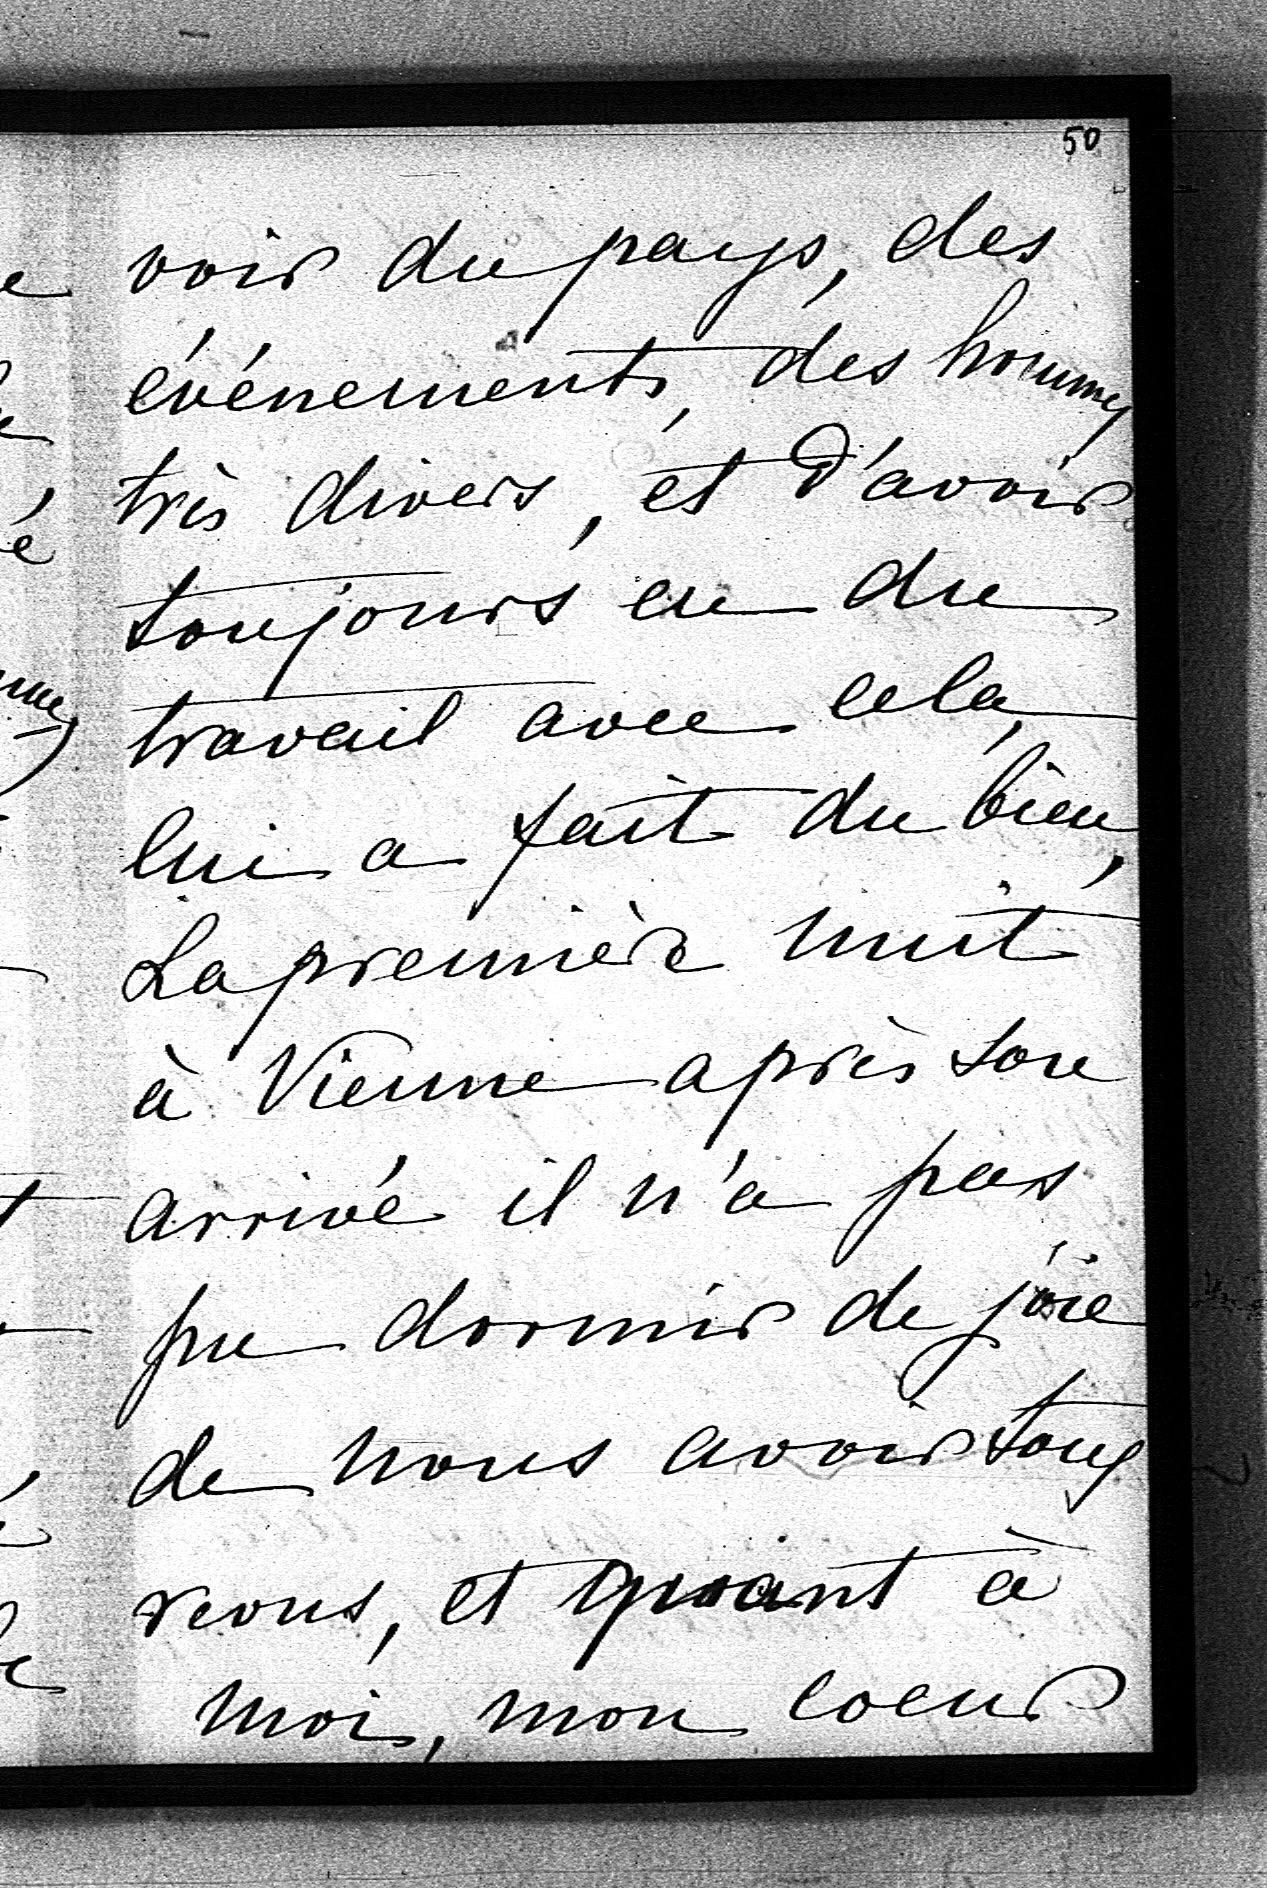 50
voir du pays, des
événements, des hommes
très divers, et d'avoir
toujours eu du
travail avec cela,
lui a fait du bien,
La première nuit
à Vienne après son
arrivé il n'a pas
pu dormir de joie
de nous avoir tous
revus, et quant à
moi, mon coeur